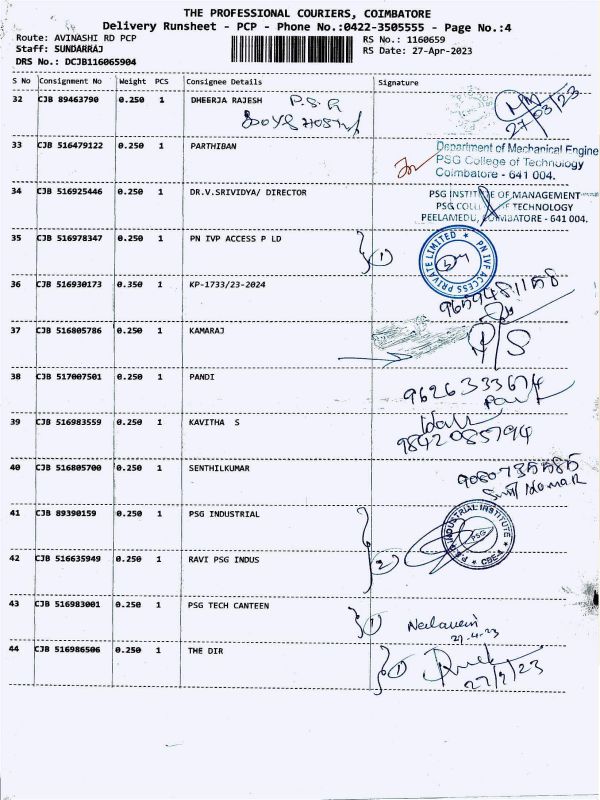 THE PROFESSIONAL COURIERS, COIMBATORE
Delivery Runsheet - PCP - Phone No.:0422-3505555 - Page No.:4
Route: AVINASHI RD PCP RS No.: 1160659
Staff: SUNDARRAJ RS Date: 27-Apr-2023
DRS No.: DCJB116065904
S No Consignment No Weight PCS Consignee Details Signature
32 CJB 89463790 0.250 1 DHEERJA RAJESH P.S.G
27/03/23
33 CJB 516479122 0.250 1 PARTHIBAN
Department of Mechanical Engine
For PSG College of Technology
Coimbatore - 641 004.
34 CJB 516925446 0.250 1 DR.V.SRIVIDYA/ DIRECTOR
PSG INSTITUTE OF MANAGEMENT
PSG COLL OF TECHNOLOGY
PEELAMEDU, COIMBATORE - 641 004.
35 CJB 516978347 0.250 1 PN IVP ACCESS P LD 1
PN IVF ACCESS PRIVATE LIMITED
36 CJB 516930173 0.350 1 KP-1733/23-2024
37 CJB 516805786 0.250 1 KAMARAJ
38 CJB 517007501 0.250 1 PANDI
39 CJB 516983559 0.250 1 KAVITHA S
9842085794
40 CJB 516805700 0.250 1 SENTHILKUMAR
41 CJB 89390159 0.250 1 PSG INDUSTRIAL
INDUSTRIAL INSTITUTE
PSG
CBE-4
42 CJB 516635949 0.250 1 RAVI PSG INDUS 2
43 CJB 516983001 0.250 1 PSG TECH CANTEEN 1
27-4-23
44 CJB 516986506 0.250 1 THE DIR 1